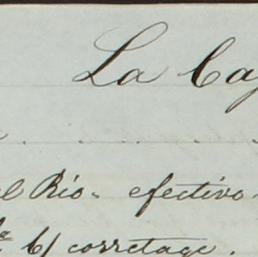 La Caj
el Rio. efectivo.
b/ corretage.